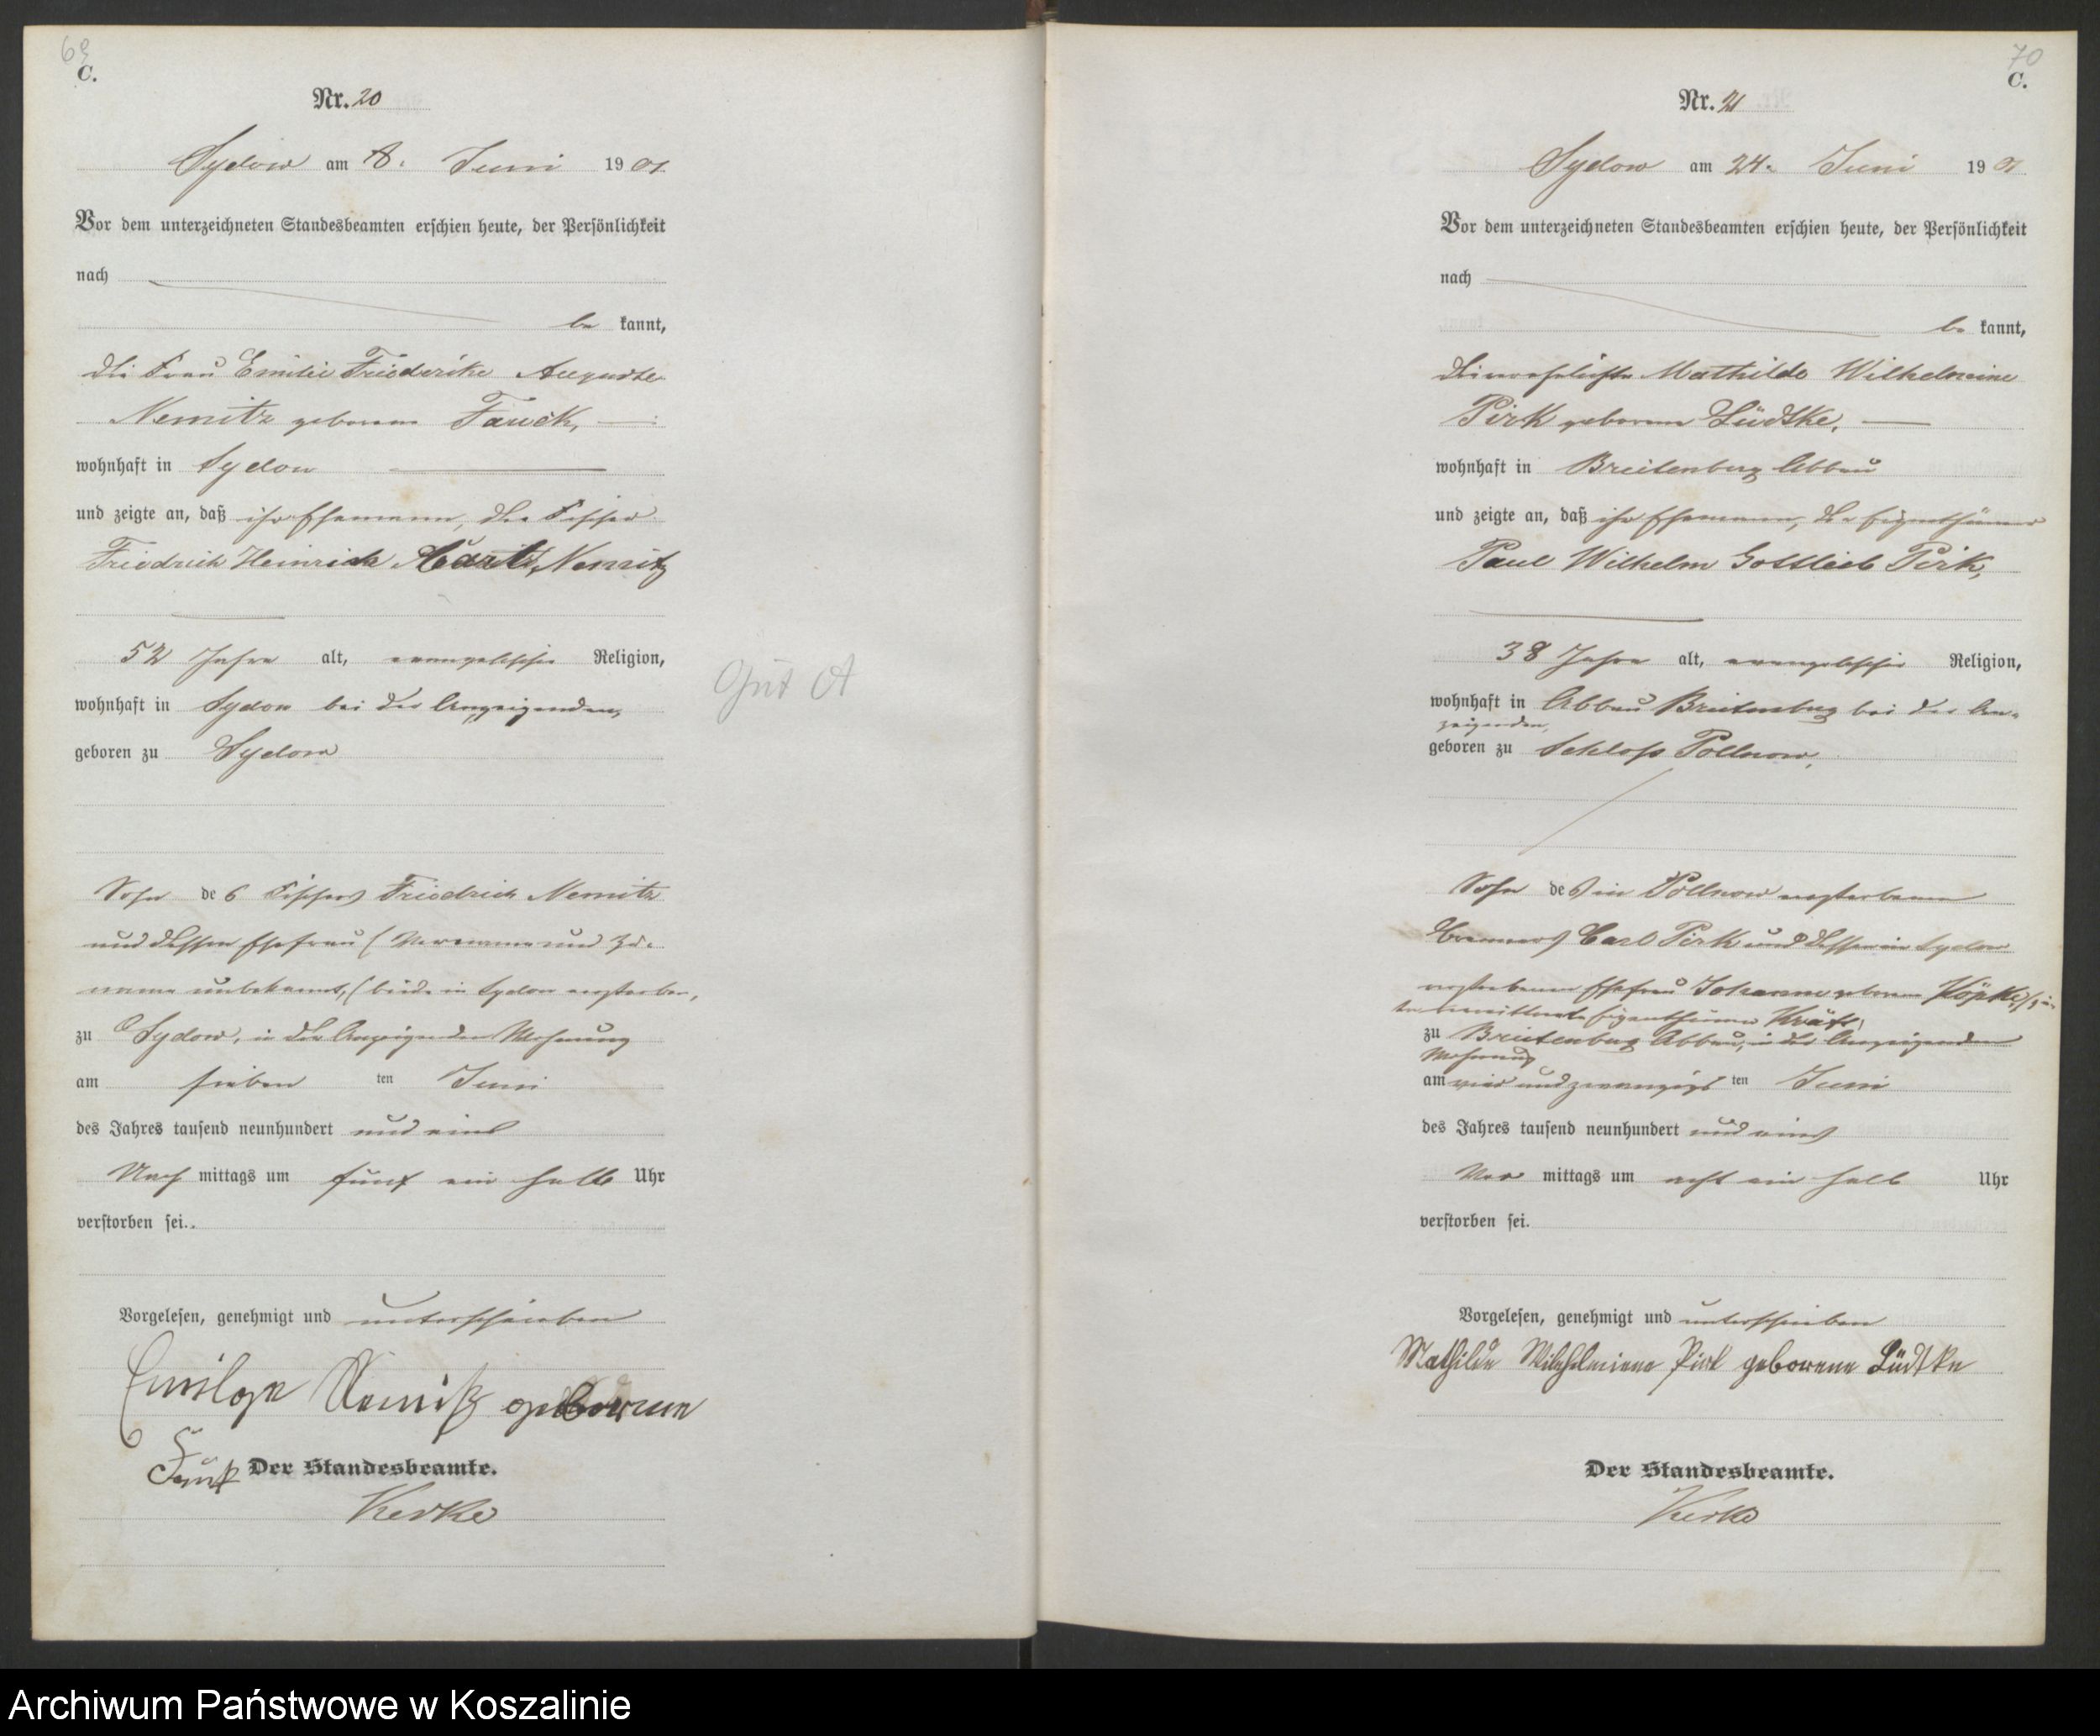 69
C.
Nr. 20
Sydow am 8. Juni 1901
Vor dem unterzeichneten Standesbeamten erschien heute, der Persönlichkeit
nach
be kannt,
die Frau Emilie Friederike Auguste
Nemitz geborene Fauck,
wohnhaft in Sydow
und zeigte an, daß ihr Ehemann, der Fischer
Friedrich Heinrich Nemitz
52 Jahre alt, evangelischer Religion,
wohnhaft in Sydow bei der Anzeigenden,
geboren zu Sydow
Sohn des Fischers Friedrich Nemitz
und dessen Ehefrau (Vorname und Zu-
name unbekannt,) beide in Sydow verstorben,
zu Sydow, in der Anzeigenden Wohnung
am sieben ten Juni
des Jahres tausend neunhundert und eins
Nach mittags um fünf ein halb Uhr
verstorben sei.
Vorgelesen, genehmigt und unterschrieben
Nemitz geborene
Fauk
Der Standesbeamte.
Kerke
Gut A
70
C.
Nr. 21
Sydow am 24. Juni 1901
Vor dem unterzeichneten Standesbeamten erschien heute, der Persönlichkeit
nach
be kannt,
die verehelichte Mathilde Wilhelmine
Pirk geborene Lüdtke,
wohnhaft in Breitenberg Abbau
und zeigte an, daß ihr Ehemann, der Eigenthümer
Paul Wilhelm Gottlieb Pirk,
38 Jahre alt, evangelischer Religion,
wohnhaft in Abbau Breitenberg bei der An-
zeigenden,
geboren zu Schloß Pollnow,
Sohn des in Pollnow verstorbenen
Carl Pirk und dessen in Sydow
verstorbenen Ehefrau Johanne geborene Köpke,
Eigenthümer
zu Breitenberg Abbau, in der Anzeigenden
Wohnung
am vier und zwanzigs ten Juni
des Jahres tausend neunhundert und eins
Vor mittags um acht ein halb Uhr
verstorben sei.
Vorgelesen, genehmigt und unterschrieben
Mathilde Wilhelmiene Pirk geborene Lüdtke
Der Standesbeamte.
Kerke
Archiwum Państwowe w Koszalinie